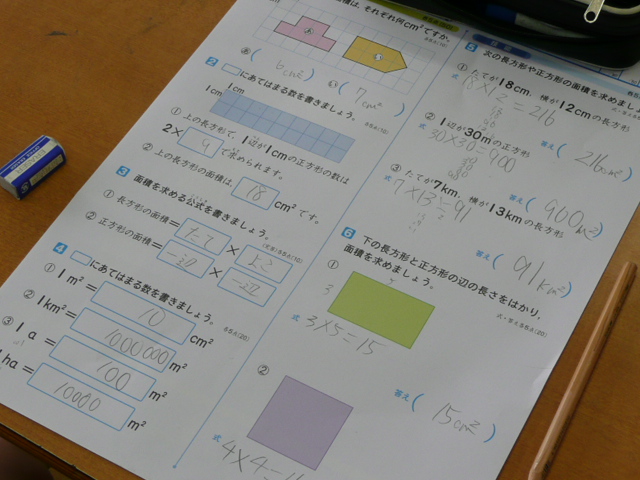 面積は、それぞれ何cm²ですか。
あ
い
あ( 6cm² ) い( 7cm² )
2 □にあてはまる数を書きましょう。
1cm
1cm
① 上の長方形で、1辺が1cmの正方形の数は
2× 9 で求められます。
② 上の長方形の面積は、 18 cm²です。
3 面積を求める公式を書きましょう。
① 長方形の面積= たて × よこ
② 正方形の面積= 一辺 × 一辺
4 □にあてはまる数を書きましょう。
① 1m²= 10 cm²
② 1km²= 1000000 m²
③ 1a= 100 m²
1ha= 10000 m²
5 次の長方形や正方形の面積を求めましょう
① たてが18cm、横が12cmの長方形
式 18×12=216
答え( 216cm² )
② 1辺が30mの正方形
式 30×30=900
答え( 900m² )
③ たてが7km、横が13kmの長方形
式 7×13=91
答え( 91km² )
6 下の長方形と正方形の辺の長さをはかり、
面積を求めましょう。
式・答え各5点(20)
①
3
式 3×5=15
答え( 15cm² )
②
式 4×4=